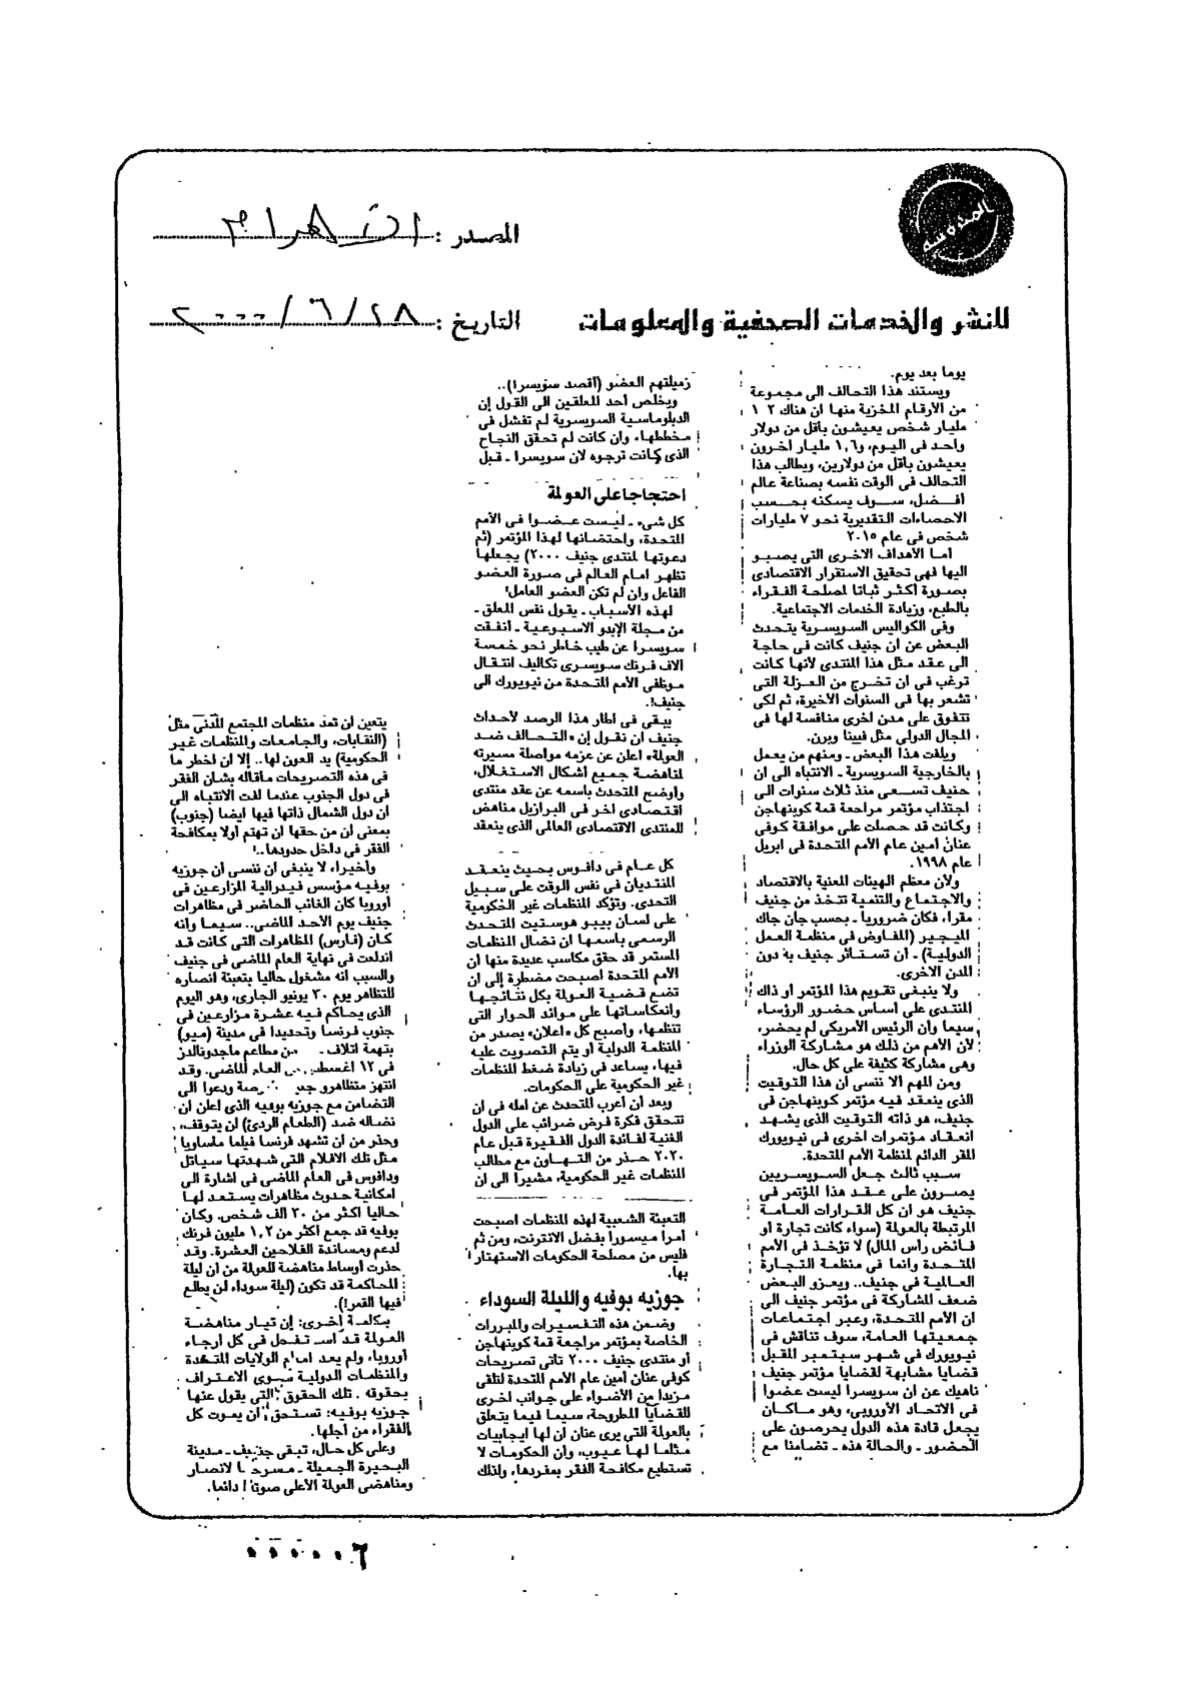 المصدر : الأهرام
للنشر والخدمات الصحفية والمعلومات
التاريخ : ٢٠٠٠/٦/٢٨
يوما بعد يوم.
ويستند هذا التحالف الى مجموعة
من الأرقام المخزية منها ان هناك ٢ ١
مليار شخص يعيشون بأقل من دولار
واحد فى اليوم، و١,٦ مليار اخرون
يعيشون بأقل من دولارين، ويطالب هذا
التحالف فى الوقت نفسه بصناعة عالم
افضل، سوف يسكنه بحسب
الاحصاءات التقديرية نحو ٧ مليارات
شخص فى عام ٢٠١٥
أما الأهداف الاخرى التى يصبو
اليها فهى تحقيق الاستقرار الاقتصادى
بصورة أكثر ثباتا لمصلحة الفقراء
بالطبع، وزيادة الخدمات الاجتماعية.
وفى الكواليس السويسرية يتحدث
البعض عن ان جنيف كانت فى حاجة
الى عقد مثل هذا المنتدى لأنها كانت
ترغب فى ان تخرج من العزلة التى
تشعر بها فى السنوات الأخيرة، ثم لكى
تتفوق على مدن اخرى منافسة لها فى
المجال الدولى مثل فيينا وبرن.
ويلفت هذا البعض - ومنهم من يعمل
بالخارجية السويسرية - الانتباه الى ان
جنيف تسعى منذ ثلاث سنوات الى
اجتذاب مؤتمر مراجعة قمة كوبنهاجن
وكانت قد حصلت على موافقة كوفى
عنان امين عام الأمم المتحدة فى ابريل
عام ١٩٩٨.
ولأن معظم الهيئات المعنية بالاقتصاد
والاجتماع والتنمية تتخذ من جنيف
مقرا، فكان ضروريا - بحسب جان جاك
الميجير (المفاوض فى منظمة العمل
الدولية) - أن تستأثر جنيف به دون
المدن الاخرى.
ولا ينبغى تقويم هذا المؤتمر او ذاك
المنتدى على أساس حضور الرؤساء
سيما وأن الرئيس الأمريكى لم يحضر،
لأن الأهم من ذلك هو مشاركة الوزراء
وهى مشاركة كثيفة على كل حال.
ومن المهم الا ننسى ان هذا التوقيت
الذى ينعقد فيه مؤتمر كوبنهاجن فى
جنيف، هو ذاته التوقيت الذى يشهد
انعقاد مؤتمرات اخرى فى نيويورك
المقر الدائم لمنظمة الأمم المتحدة.
سبب ثالث جعل السويسريين
يصرون على عقد هذا المؤتمر فى
جنيف هو ان كل القرارات العامة
المرتبطة بالعولة (سواء كانت تجارة او
فائض رأس المال) لا تؤخذ فى الأمم
المتحدة وانما فى منظمة التجارة
العالمية فى جنيف.. ويعزو البعض
ضعف المشاركة فى مؤتمر جنيف الى
ان الأمم المتحدة، وعبر اجتماعات
جمعيتها العامة، سوف تناقش فى
نيويورك فى شهر سبتمبر المقبل
قضايا مشابهة لقضايا مؤتمر جنيف
ناهيك عن ان سويسرا ليست عضوا
فى الاتحاد الأوروبى، وهو ماكان
يجعل قادة هذه الدول يحرصون على
الحضور - والحالة هذه - تضامنا مع
زميلتهم العضو (أقصد سويسرا)..
ويخلص أحد المعلقين الى القول إن
الدبلوماسية السويسرية لم تفشل فى
مخططها، وان كانت لم تحقق النجاح
الذى كانت ترجوه لان سويسرا - قبل
احتجاجا على العولة
كل شىء - ليست عضوا فى الأمم
المتحدة، واحتضانها لهذا المؤتمر (ثم
دعوتها لمنتدى جنيف ٢٠٠٠) يجعلها
تظهر امام العالم فى صورة العضو
الفاعل وان لم تكن العضو العامل!
لهذه الأسباب - يقول نفس المعلق -
من مجلة الإبدو الاسبوعية - أنفقت
سويسرا عن طيب خاطر نحو خمسة
الاف فرنك سويسرى تكاليف انتقال
موظفى الأمم المتحدة من نيويورك الى
جنيف!.
يبقى فى اطار هذا الرصد لأحداث
جنيف ان نقول إن «التحالف ضد
العولة» اعلن عن عزمه مواصلة مسيرته
لمناهضة جميع أشكال الاستغلال،
وأوضح المتحدث باسمه عن عقد منتدى
اقتصادى اخر فى البرازيل مناهض
للمنتدى الاقتصادى العالمى الذى ينعقد
كل عام فى دافوس بحيث ينعقد
المنتديان فى نفس الوقت على سبيل
التحدى. وتؤكد المنظمات غير الحكومية
على لسان بيبو هوستيت المتحدث
الرسمى باسمها ان نضال المنظمات
المستمر قد حقق مكاسب عديدة منها أن
الأمم المتحدة اصبحت مضطرة إلى ان
تضع قضية العولة بكل نتائجها
وانعكاساتها على موائد الحوار التى
تنظمها، وأصبح كل «اعلان» يصدر من
المنظمة الدولية أو يتم التصويت عليه
فيها، يساعد فى زيادة ضغط المنظمات
غير الحكومية على الحكومات.
وبعد أن أعرب المتحدث عن امله فى ان
تتحقق فكرة فرض ضرائب على الدول
الغنية لفائدة الدول الفقيرة قبل عام
٢٠٢٠ حذر من التهاون مع مطالب
المنظمات غير الحكومية، مشيرا الى ان
التعبئة الشعبية لهذه المنظمات اصبحت
أمرا ميسورا بفضل الانترنت، ومن ثم
فليس من مصلحة الحكومات الاستهتار
بها.
جوزيه بوفيه والليلة السوداء
وضمن هذه التفسيرات والمبررات
الخاصة بمؤتمر مراجعة قمة كوبنهاجن
أو منتدى جنيف ٢٠٠٠ تأتى تصريحات
كوفى عنان أمين عام الأمم المتحدة لتلقى
مزيدا من الأضواء على جوانب اخرى
للقضايا المطروحة، سيما فيما يتعلق
بالعولة التى يرى عنان أن لها ايجابيات
مثلما لها عيوب، وان الحكومات لا
تستطيع مكافحة الفقر بمفردها، ولذلك
يتعين ان تمد منظمات المجتمع المدنى مثل
(النقابات، والجامعات والمنظمات غير
الحكومية) يد العون لها.. إلا ان اخطر ما
فى هذه التصريحات ماقاله بشأن الفقر
فى دول الجنوب عندما لفت الانتباه الى
ان دول الشمال ذاتها فيها ايضا (جنوب)
بمعنى ان من حقها ان تهتم أولا بمكافحة
الفقر فى داخل حدودها..!
وأخيرا، لا ينبغى ان ننسى أن جوزيه
بوفيه مؤسس فيدرالية المزارعين فى
أوروبا كان الغائب الحاضر فى مظاهرات
جنيف يوم الأحد الماضى.. سيما وانه
كان (فارس) المظاهرات التى كانت قد
اندلعت فى نهاية العام الماضى فى جنيف
والسبب انه مشغول حاليا بتعبئة انصاره
للتظاهر يوم ٣٠ يونيو الجارى، وهو اليوم
الذى يحاكم فيه عشرة مزارعين فى
جنوب فرنسا وتحديدا فى مدينة (ميو)
بتهمة اتلاف من مطاعم ماجدونالدز
فى ١٢ اغسطس من العام الماضى. وقد
انتهز متظاهرو ودعوا الى
التضامن مع جوزيه بوفيه الذى اعلن ان
نضاله ضد (الطعام الردئ) لن يتوقف،
وحذر من ان تشهد فرنسا فيلما مأساويا
مثل تلك الافلام التى شهدتها سياتل
ودافوس فى العام الماضى فى اشارة الى
امكانية حدوث مظاهرات يستعد لها
حاليا اكثر من ٣٠ الف شخص. وكان
بوفيه قد جمع أكثر من ١,٢ مليون فرنك
لدعم ومساندة الفلاحين العشرة. وقد
حذرت أوساط مناهضة للعولة من ان ليلة
المحاكمة قد تكون (ليلة سوداء لن يطلع
فيها القمر!).
بكلمة أخرى: إن تيار مناهضة
العولة قد استفحل فى كل أرجاء
أوروبا، ولم يعد امام الولايات المتحدة
والمنظمات الدولية سوى الاعتراف
بحقوقه . تلك الحقوق التى يقول عنها
جوزيه بوفيه: تستحق أن يموت كل
الفقراء من أجلها.
وعلى كل حال، تبقى جنيف - مدينة
البحيرة الجميلة - مسرحا لانصار
ومناهضى العولة الأعلى صوتا دائما.